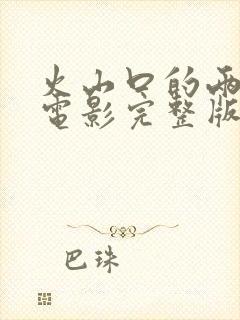 火山口的两
电影完整版
巴珠